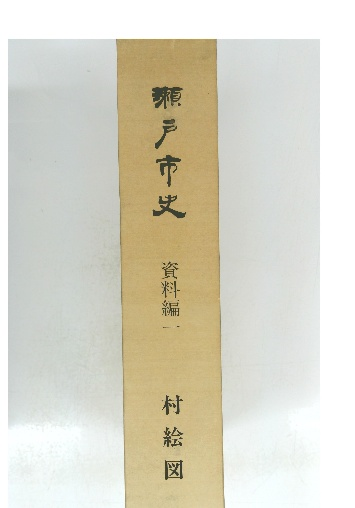 瀬戸市史
資料編一
村絵図